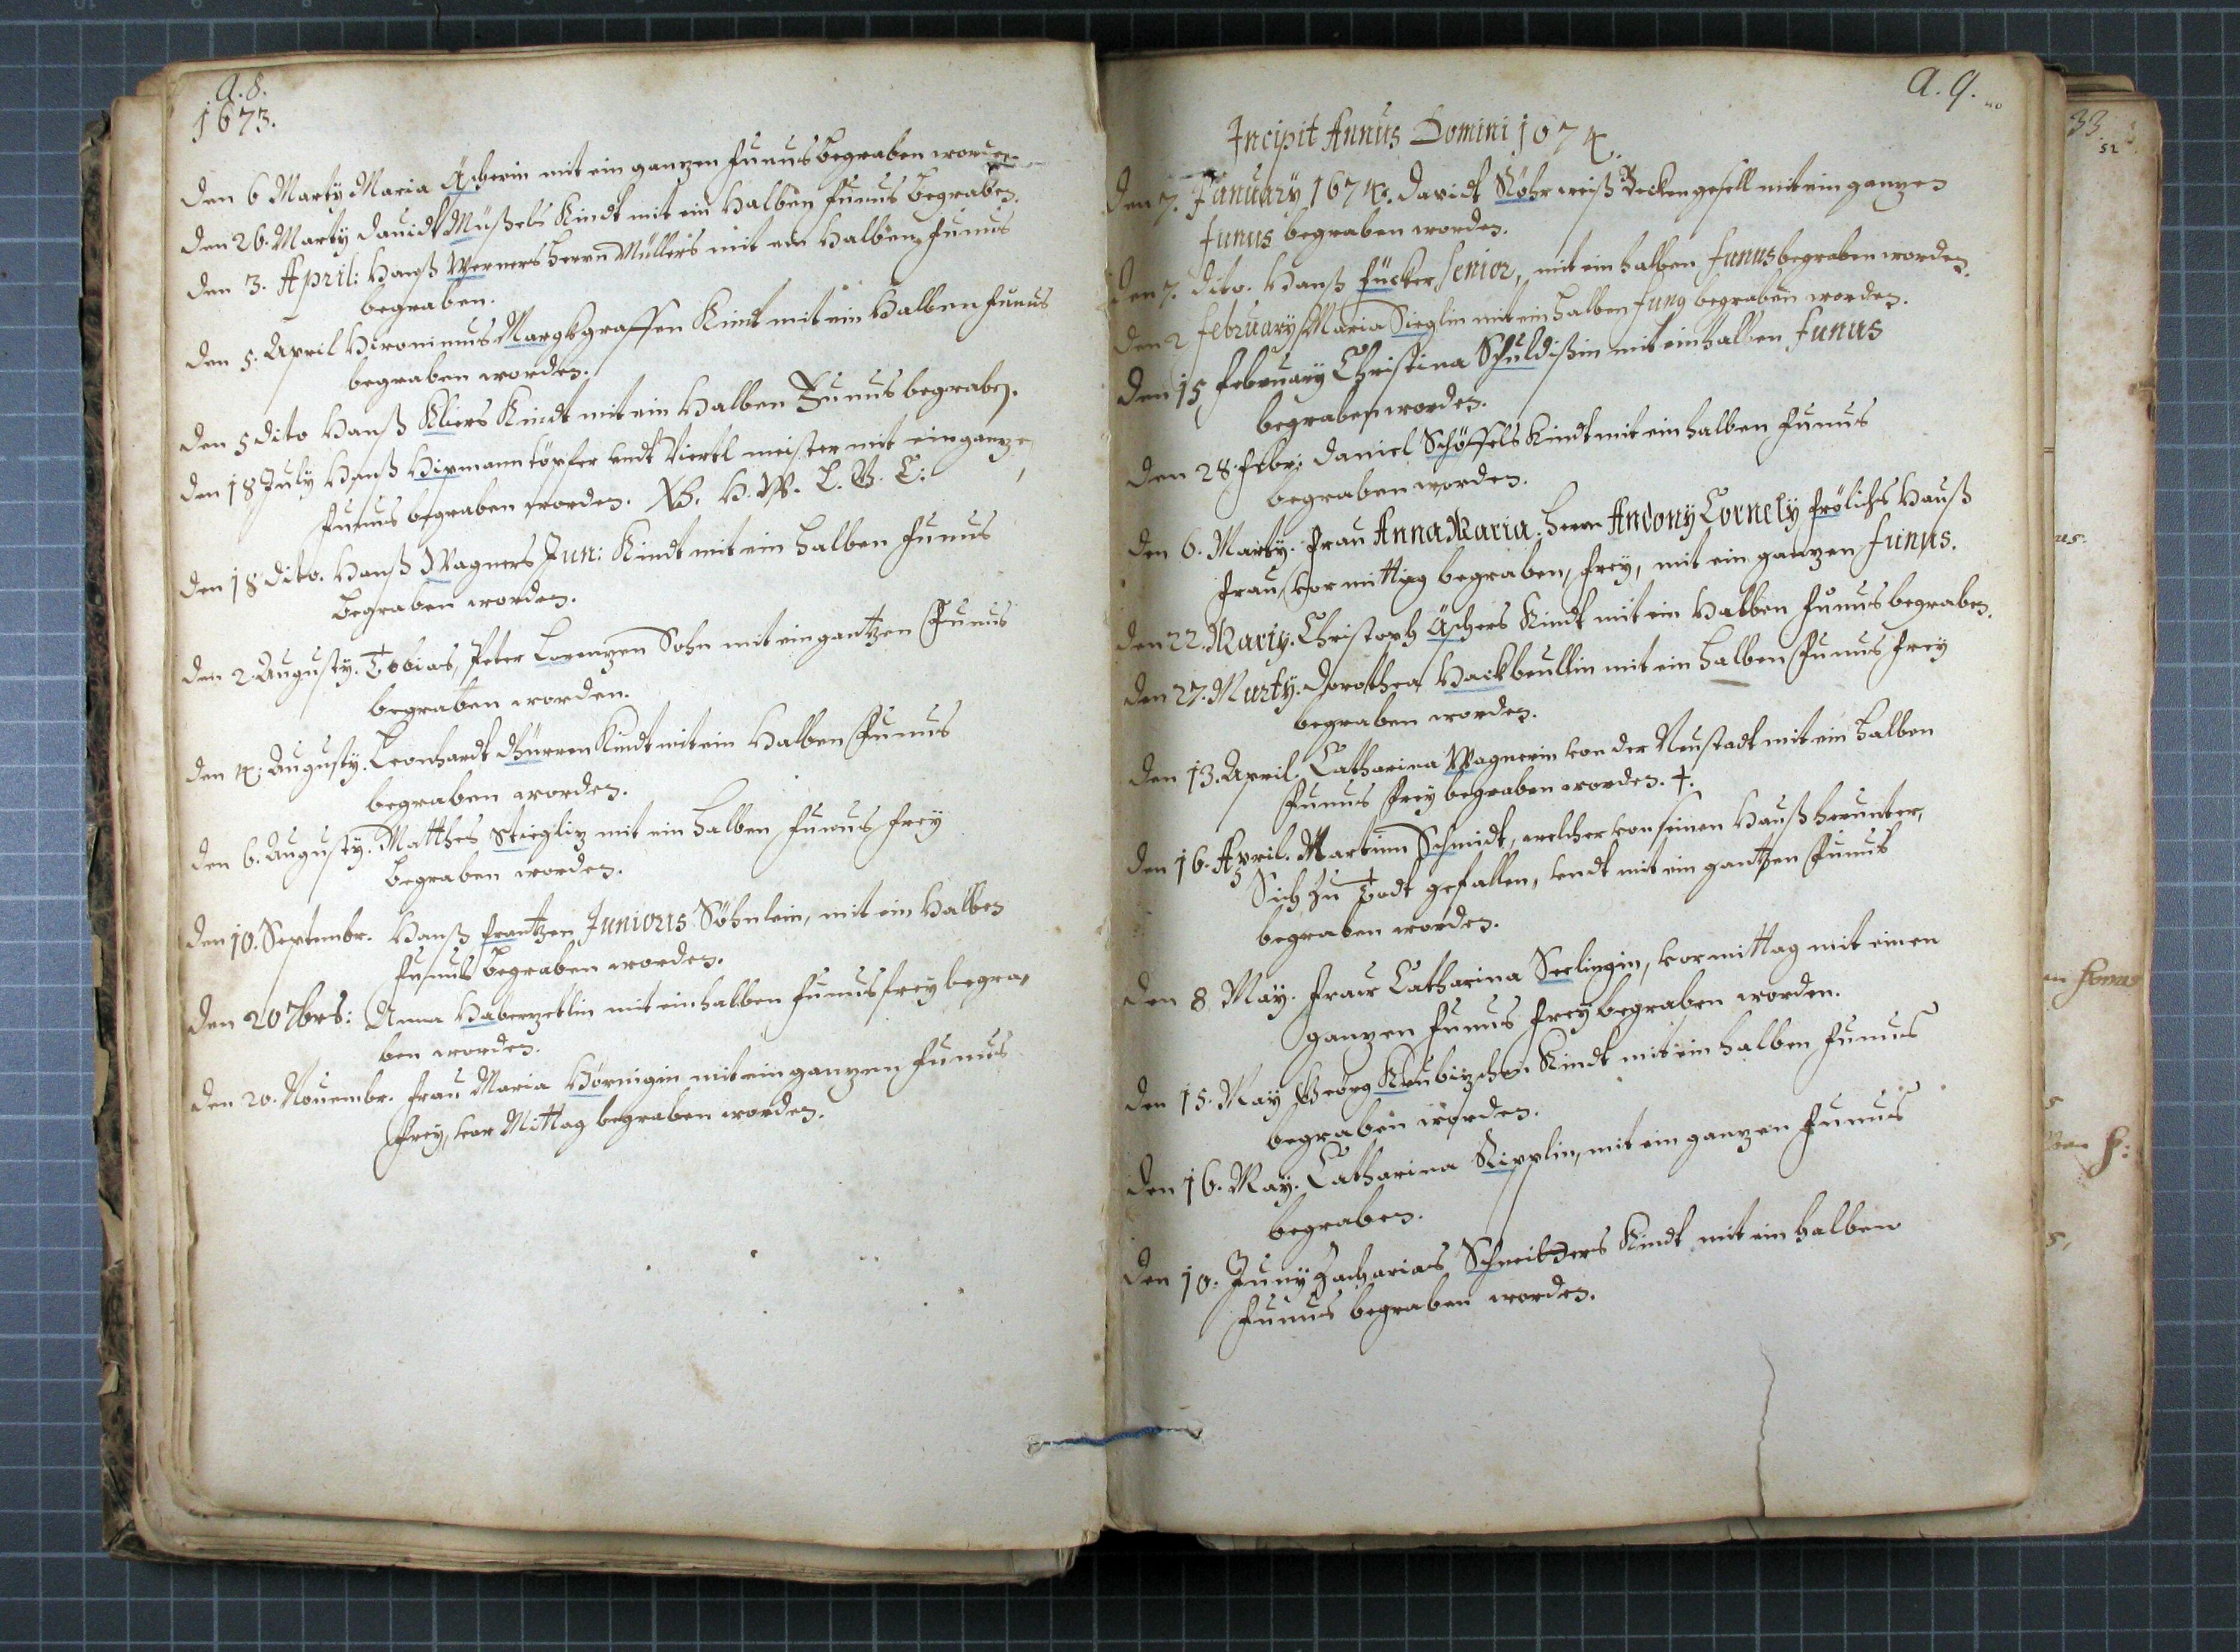 a. 8.
1673.
Den 6 Marty Maria Äscherin mit ein gantzen Funus begraben worden
Den 26. Marty Dauidt Müßels Kindt mit ein Halben Funus begraben.
Den 3. April: Hanß Werners Herrn Müllers mit ein Halben Funus
begraben.
Den 5. April Hironimus Margkgraffen Kindt mit ein Halben Funus
begraben worden.
Den 5 dito Hanß Kliers Kindt mit ein Halben Funus begraben.
Den 18 July Hanß töpfer undt Viertl meister mit ein gantze
Funus begraben worden. NB. H. W. L. B. C:
Den 18 dito. Hanß Wagners Jun: Kindt mit ein halben Funus
begraben worden.
Den 2. Augusty. Tobias, Peter Lorenzen Sohn mit ein gantzen Funus
begraben worden.
Den 4. Augusty. Leonhardt Kindt mit ein Halben Funus
begraben worden.
Den 6. Augusty. Matthes Stiegliz mit ein halben Funus frey
begraben worden.
Den 10. Septembr. Hanß Frantzen Junioris Söhnlein, mit ein Halben
Funus begraben worden.
Den 20 7brs: Anna Haberzetlin mit ein halben Funus frey begra,
ben worden.
Den 20. Nouembr. Frau Maria Hörnigin mit ein gantzen Funus
frey, vor Mittag begraben worden.
a. 9.
Incipit Annus Domini 1674.
Den 7. January 1674. Davidt Röhr weiß Becken gesell mit ein gantzen
funus begraben worden.
Den 7. dito. Hanß Fücker, Senior, mit ein halben funus begraben worden.
Den 2 february Maria Sieglin mit ein halben fung begraben worden.
Den 15 february Christina Schuldißin mit ein halben funus
begraben worden.
Den 28. febr: Daniel Schöffels Kindt mit ein halben Funus
begraben worden.
Den 6. Marty. Frau Anna Maria. Herrn Andony Cornely Frölichs Hauß
frau, vor mittag begraben, frey, mit ein gantzen funus.
Den 22. Marty. Christoph Äschers Kindt mit ein Halben Funus begraben.
Den 27. Marty. Dorothea Hackbeullin mit ein halben Funus frey
begraben worden.
Den 13. April. Catharina Wagnerin von der Neustadt mit ein halben
Funus frey begraben worden. †.
Den 16. April. Martinn Schmidt, welcher von seinen Hauß herunter,
Sich zu Todt gefallen, undt mit ein gantzen Funus
begraben worden.
Den 8 May. Frau Catharina Seelingin, vormittag mit einen
gantzen Funus frey begraben worden.
Den 15. May Georg Kindt mit ein halben Funus
begraben worden.
Den 16. May. Catharina Kipplin, mit ein gantzen Funus
begraben.
Den 10. Juny Zacharias Schneiders Kindt mit ein halben
Funus begraben worden.
33.
52